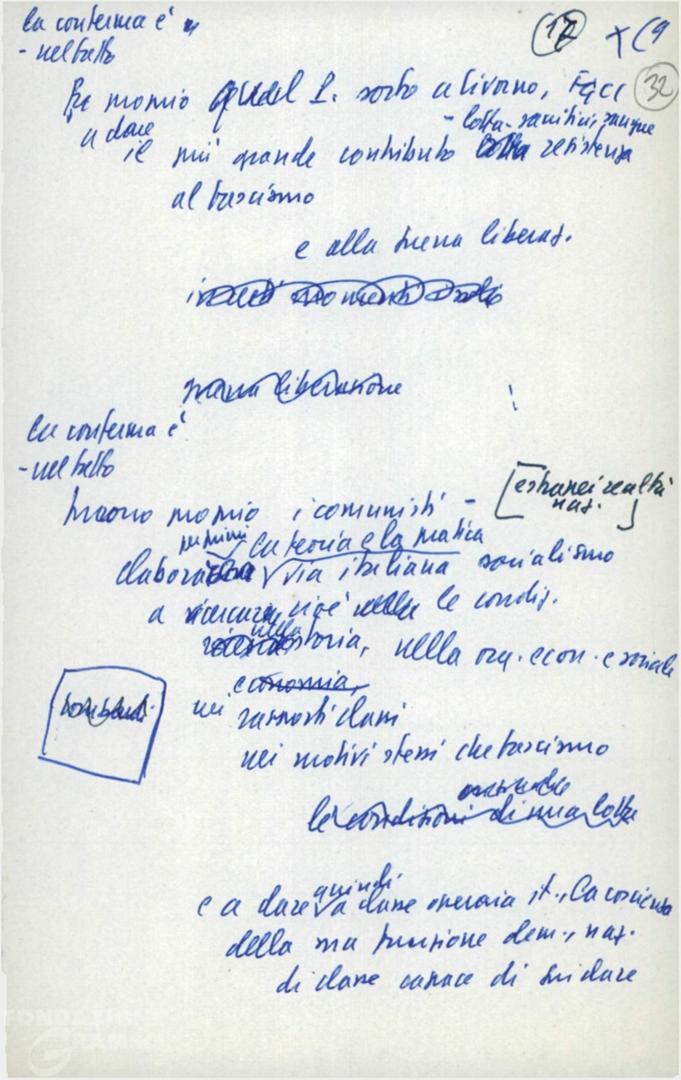 La conferma è
- nel fatto
17 x (9
32
Fu proprio quel P. sorto a Livorno,
a dare
- lotta - sacrifici, sangue
il più grande contributo lotta resistenza
al fascismo
e alla guerra liberaz.
liberazione
La conferma è
- nel fatto
[estranei realtà
naz.]
furono proprio i comunisti -
per primi la teoria e la pratica
via italiana socialismo
a ricercare cioè nelle le condiz.
nella
storia, nella org. econ. e sociale
economia,
nei rapporti classi
nei motivi stessi che fascismo
le condizioni di una lotta
quindi
e a dare a classe operaia it., la coscienza
della sua funzione dem., naz.
di classe capace di guidare
FONDAZIONE
GRAMSCI